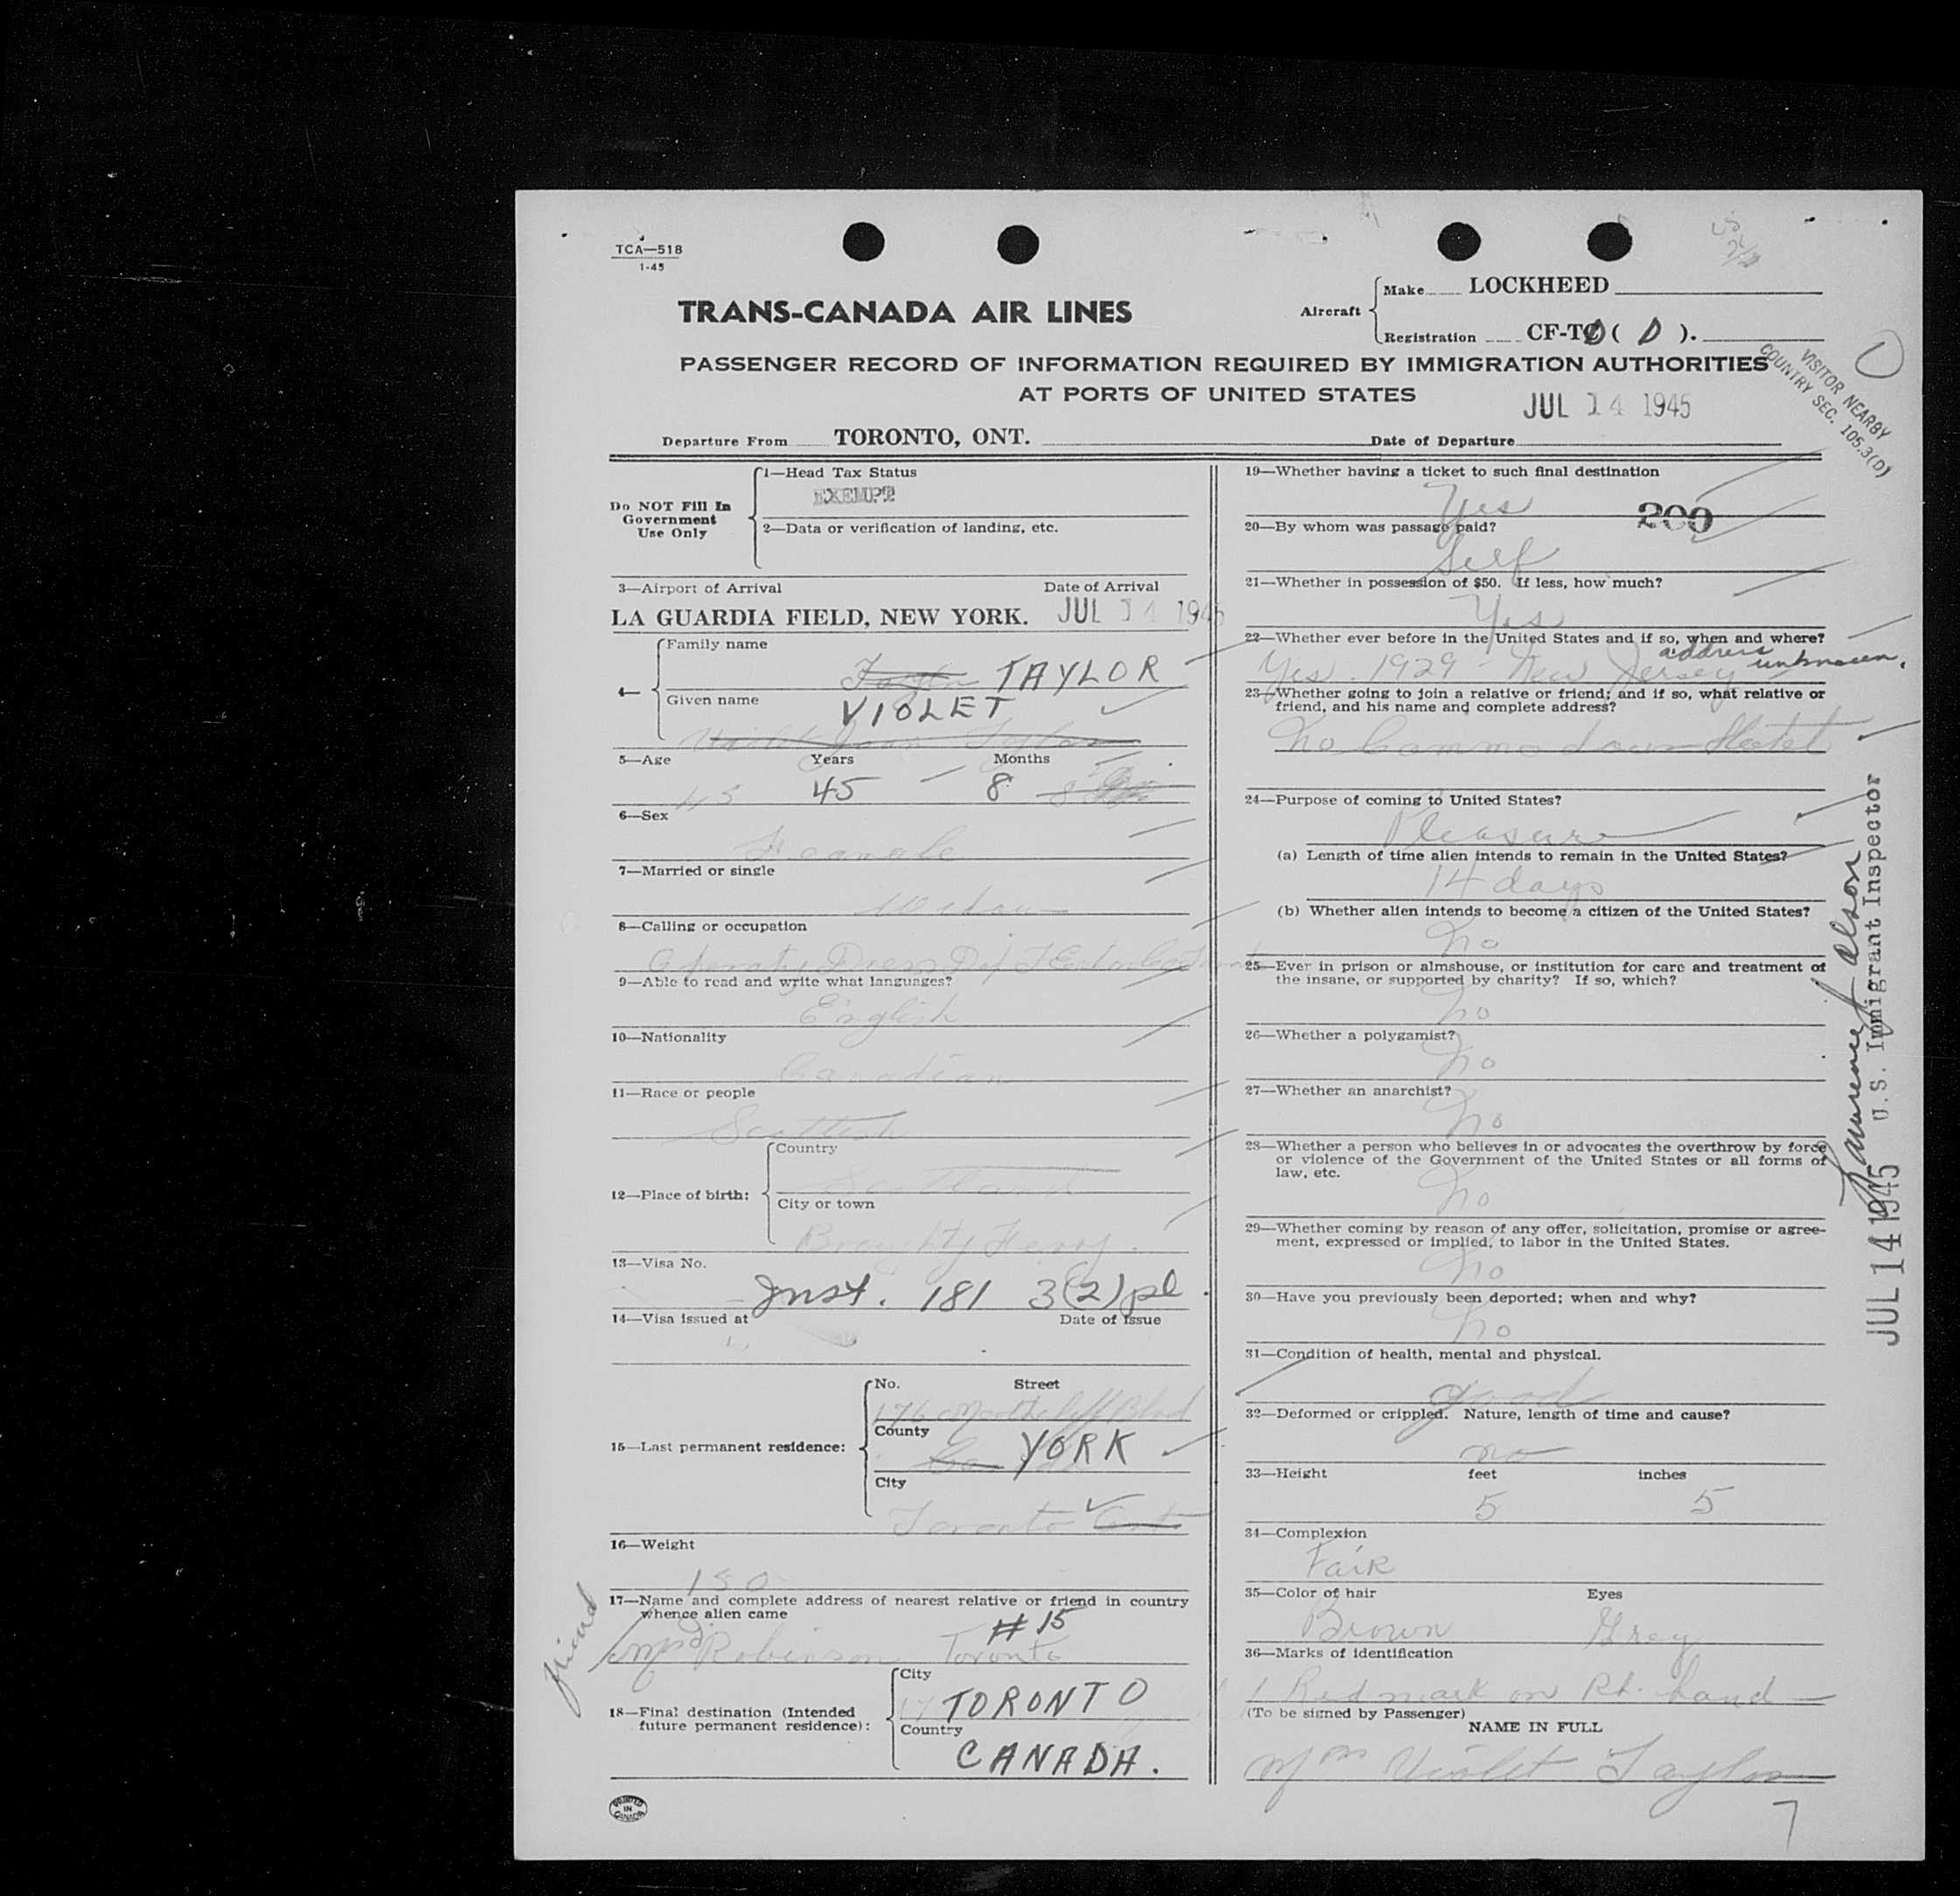 TCA—518
1-45
TRANS-CANADA AIR LINES
Aircraft
Make LOCKHEED
Registration CF-TC ( D ).
PASSENGER RECORD OF INFORMATION REQUIRED BY IMMIGRATION AUTHORITIES
AT PORTS OF UNITED STATES
JUL 14 1945
VISITOR NEARBY
COUNTRY SEC. 105.3(D)
Departure From TORONTO, ONT. Date of Departure
Do NOT Fill In
Government
Use Only
1—Head Tax Status
EXEMPT
2—Data or verification of landing, etc.
3—Airport of Arrival Date of Arrival
LA GUARDIA FIELD, NEW YORK. JUL 14 1945
4—
Family name
TAYLOR
Given name
VIOLET
5—Age Years Months
45 45 8
6—Sex
Feamale
7—Married or single
Widow
8—Calling or occupation
9—Able to read and write what languages?
English
10—Nationality
Canadian
11—Race or people
Scottish
12—Place of birth:
Country
Scotland
City or town
Broughty Ferry.
13—Visa No.
Inst. 181 3(2) pl.
14—Visa issued at Date of Issue
15—Last permanent residence:
No. Street
176 Blvd
County
YORK
City
Toronto Ont
16—Weight
150
17—Name and complete address of nearest relative or friend in country
whence alien came
# 15
friend
Mrs Robinson Toronto
18—Final destination (Intended
future permanent residence):
City
TORONTO
Country
CANADA.
PRINTED
IN
CANADA
19—Whether having a ticket to such final destination
Yes
200
20—By whom was passage paid?
Self
21—Whether in possession of $50. If less, how much?
Yes
22—Whether ever before in the United States and if so, when and where?
Yes. 1929 - New Jersey address unknown.
23—Whether going to join a relative or friend; and if so, what relative or
friend, and his name and complete address?
No Commodore Hotel
24—Purpose of coming to United States?
Pleasure
(a) Length of time alien intends to remain in the United States?
14 days
(b) Whether alien intends to become a citizen of the United States?
No
25—Ever in prison or almshouse, or institution for care and treatment of
the insane, or supported by charity? If so, which?
No
26—Whether a polygamist?
No
27—Whether an anarchist?
No
28—Whether a person who believes in or advocates the overthrow by force
or violence of the Government of the United States or all forms of
law, etc.
No
29—Whether coming by reason of any offer, solicitation, promise or agree-
ment, expressed or implied, to labor in the United States.
No
30—Have you previously been deported; when and why?
No
31—Condition of health, mental and physical.
good
32—Deformed or crippled. Nature, length of time and cause?
no
33—Height feet inches
5 5
34—Complexion
Fair
35—Color of hair Eyes
Brown Grey
36—Marks of identification
1 Red mark on Rt. hand
(To be signed by Passenger)
NAME IN FULL
Mrs Violet Taylor
7
U.S. Immigrant Inspector
JUL 14 1945